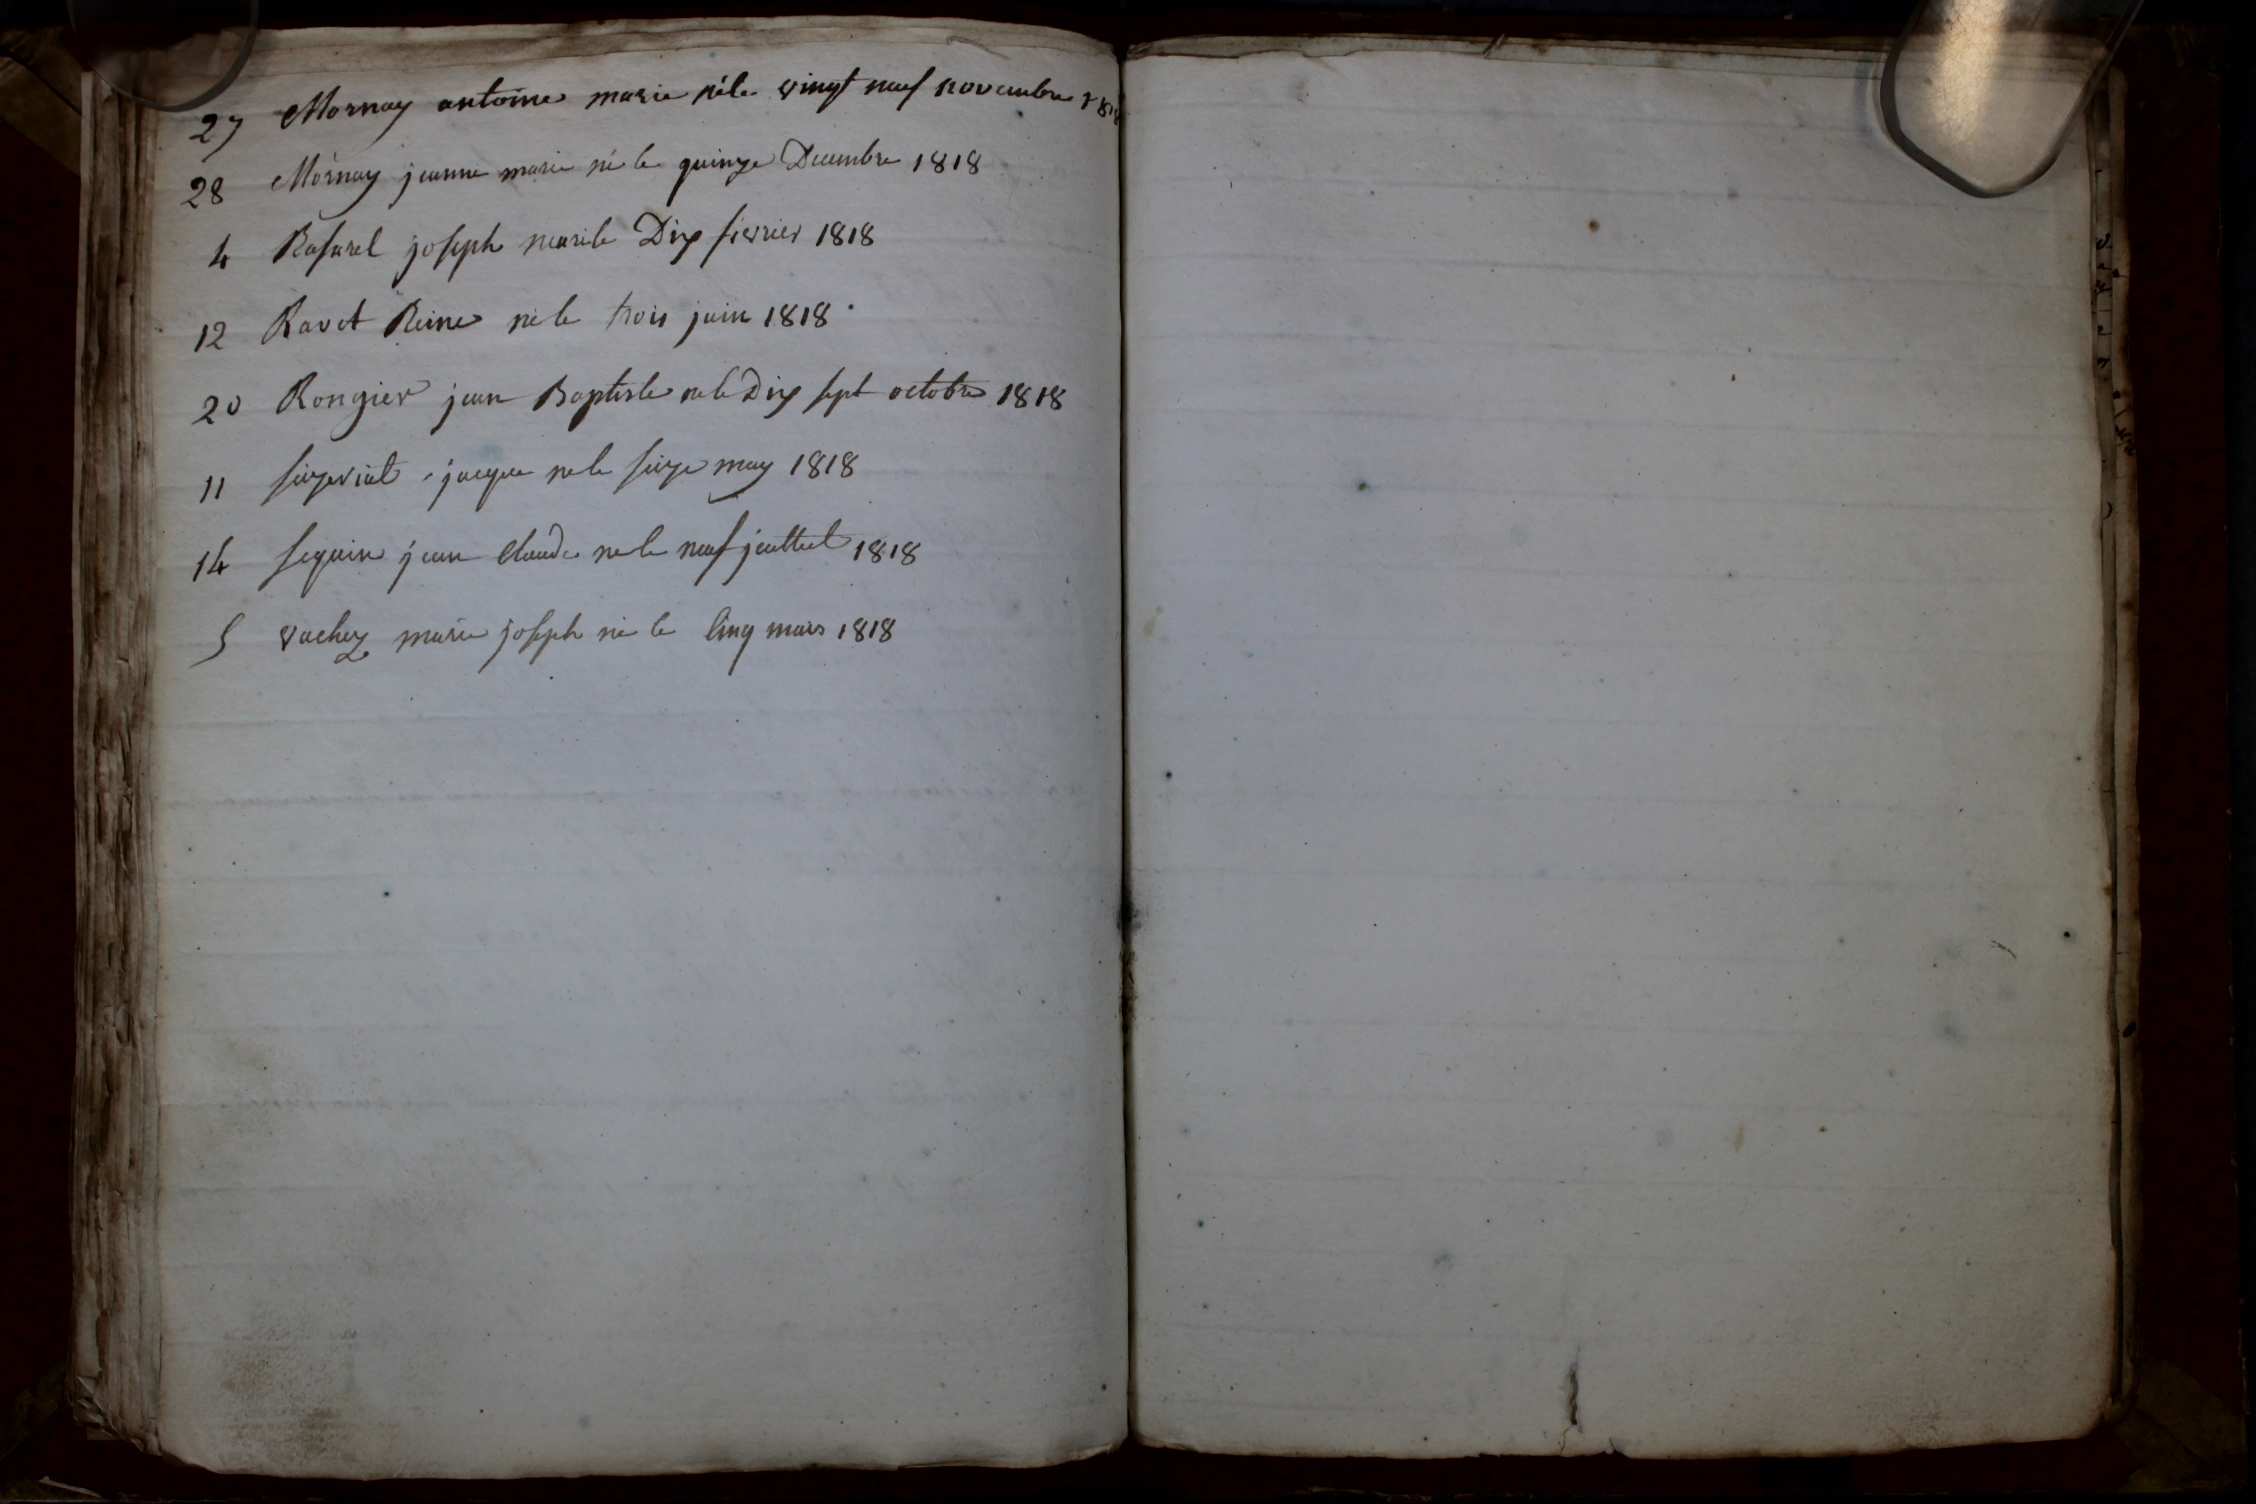 27 Mornay antoine marie né le vingt neuf novembre 1818
28 Mornay jeanne marie né le quinze Decembre 1818
4 Rafurel joseph marie le Dix fievrier 1818
12 Ravet Reine né le trois juin 1818
20 Rongier jean Baptiste ne le Dix sept octobre 1818
11 jacque ne le seize may 1818
14 seguin jean Claude ne le neuf juillet 1818
5 vachez marie joseph né le Cinq mars 1818